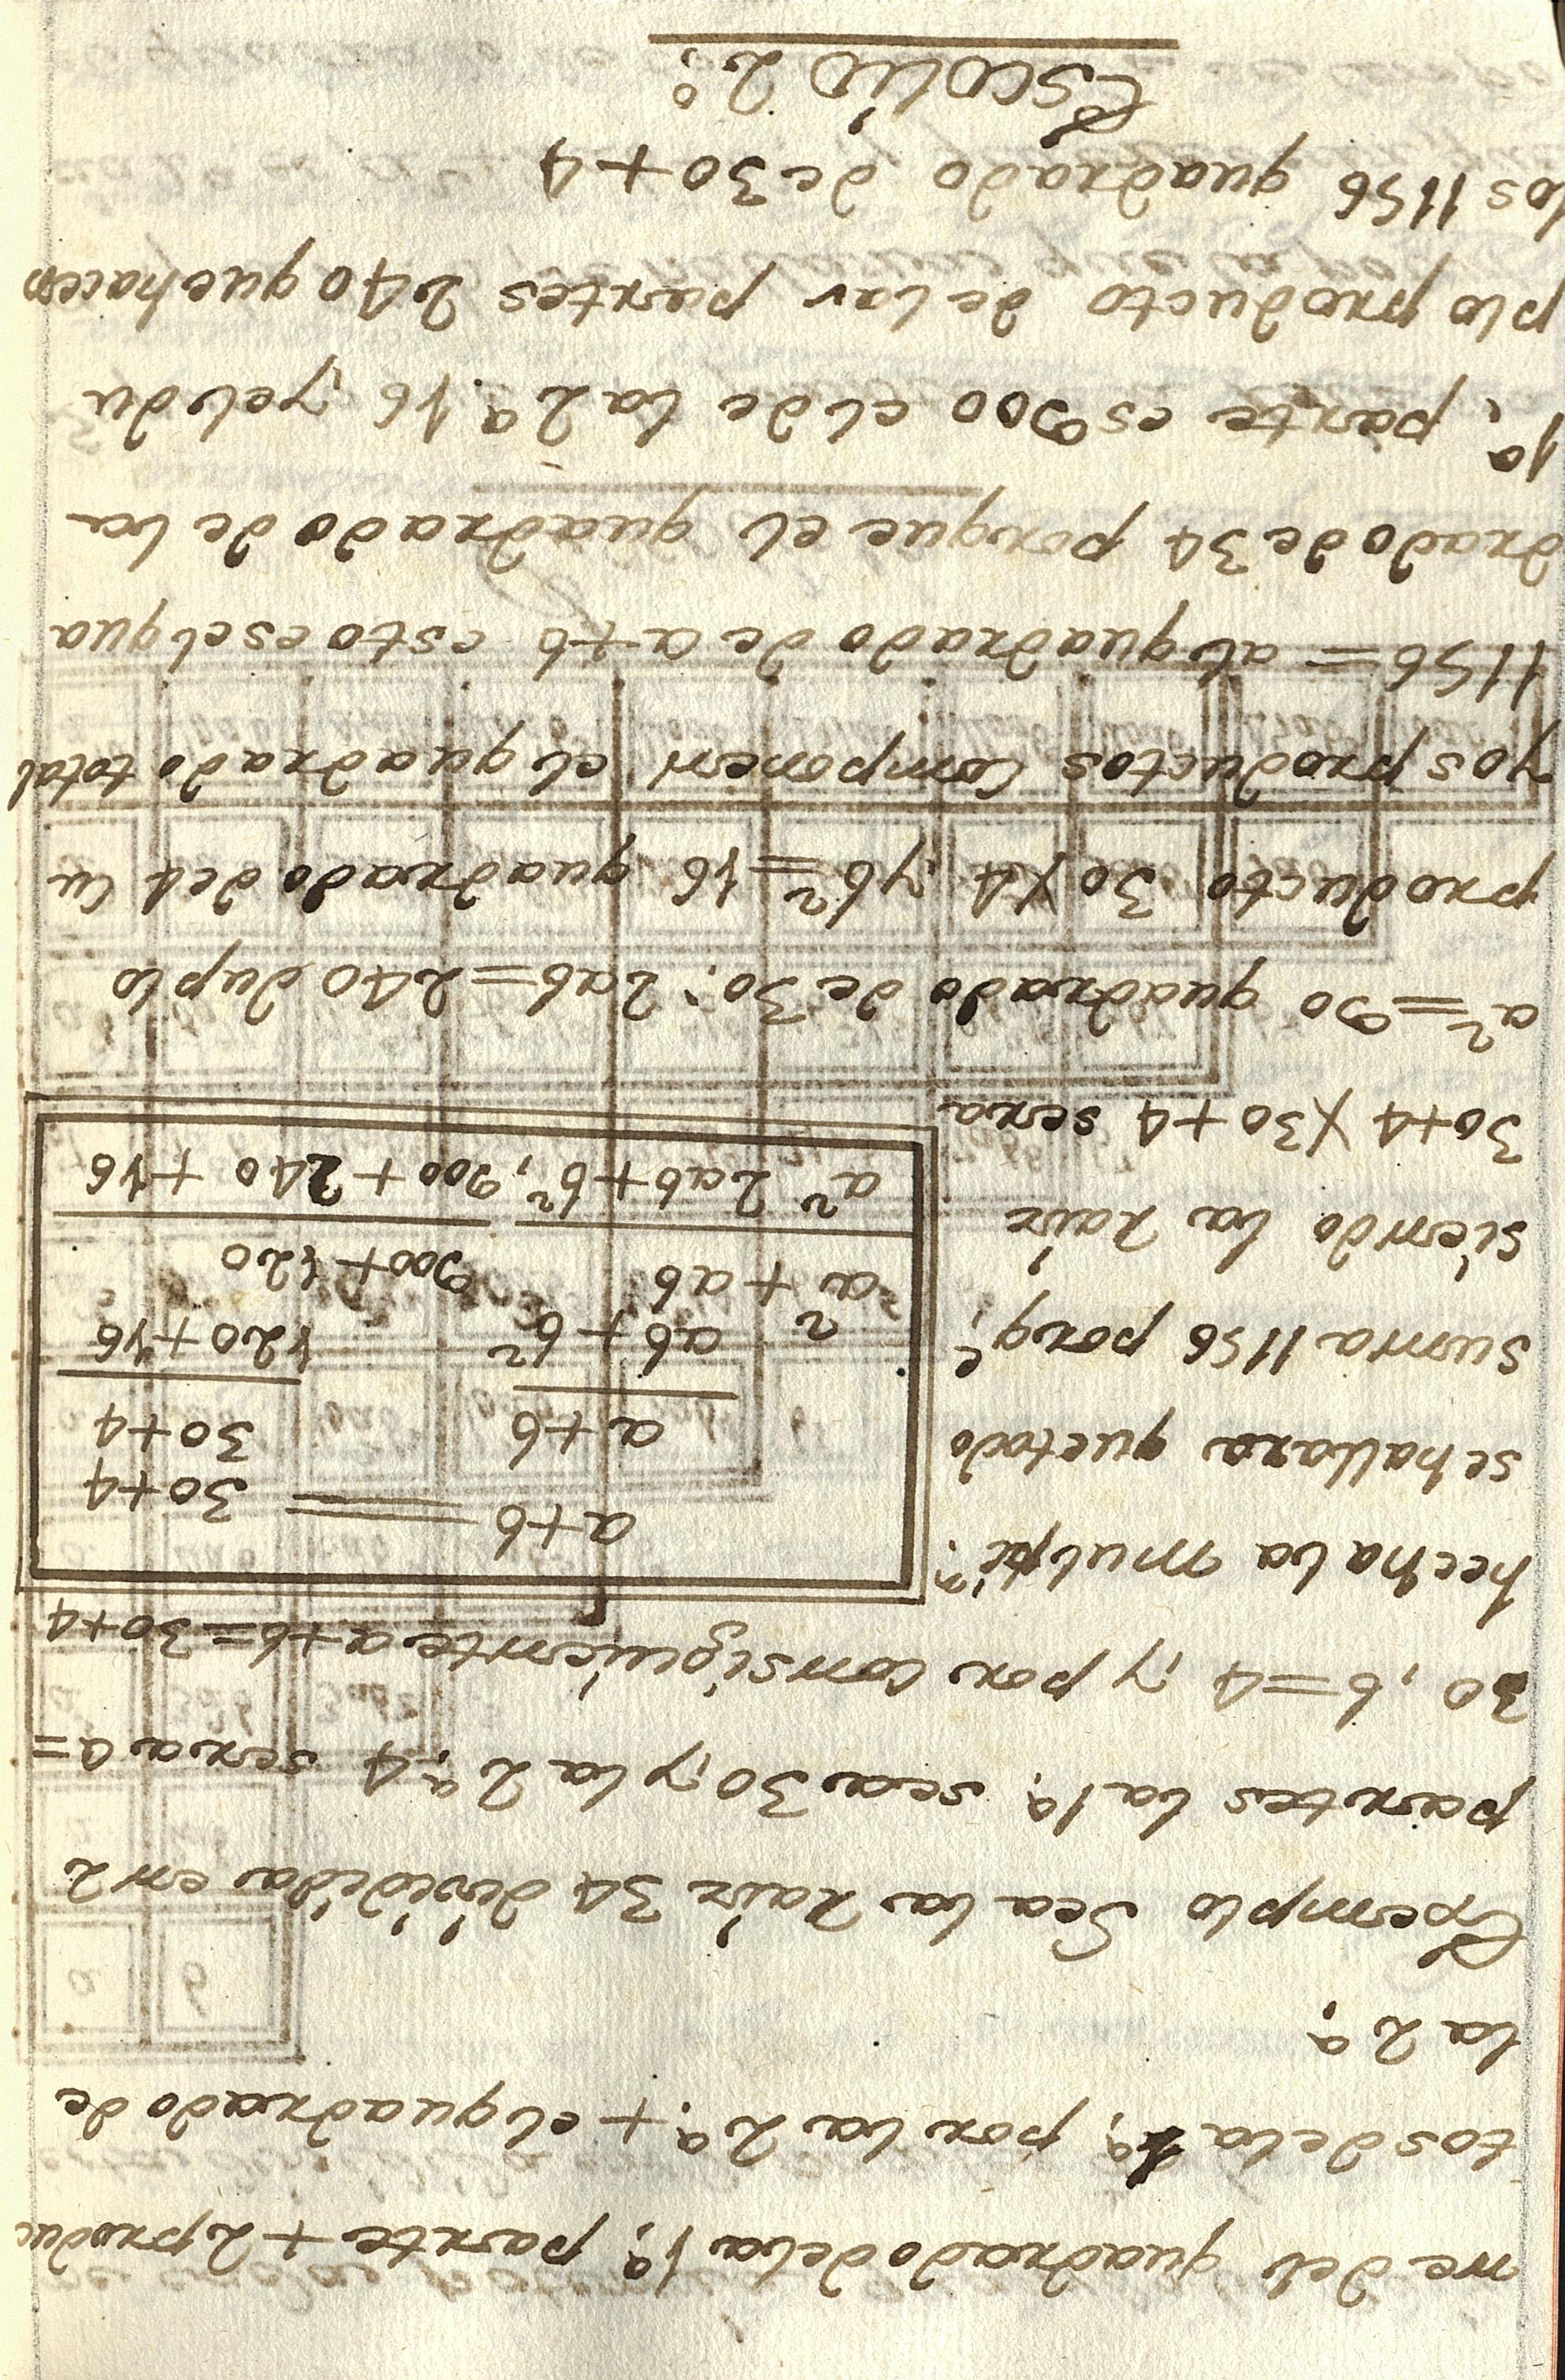 ne del quadrado dela 1ª, parte + 2 produc
tos dela 1ª, por la 2ª, + el quadrado de
la 2ª,
Exemplo Sea la raiz 34 dividida en 2
partes la 1ª, sea 30, y la 2ª, 4 sera a =
30, b = 4 y por consiguiente a+b = 30+4
hecha la multipn.
se hallara que todo
suma 1156 porq.e
siendo la raiz
30+4 X 30+4 sera
a+b = 30+4
a+b 30+4
ab+b² 120+16
a²+ab 900+120
a² 2ab+b², 900+240+16
a² = 90 quadrado de 30: 2ab = 240 duplo
producto 30X4, y b² = 16 quadrado de 4 cu
yos productos componen el quadrado total
1156 = al quadrado de a+b esto es el qua
drado de 34 porque el quadrado de la
1ª, parte es 900 el de la 2ª 16, y el du
plo producto de las partes 240 que hacen
los 1156 quadrado de 30+4
Escolio 2º,